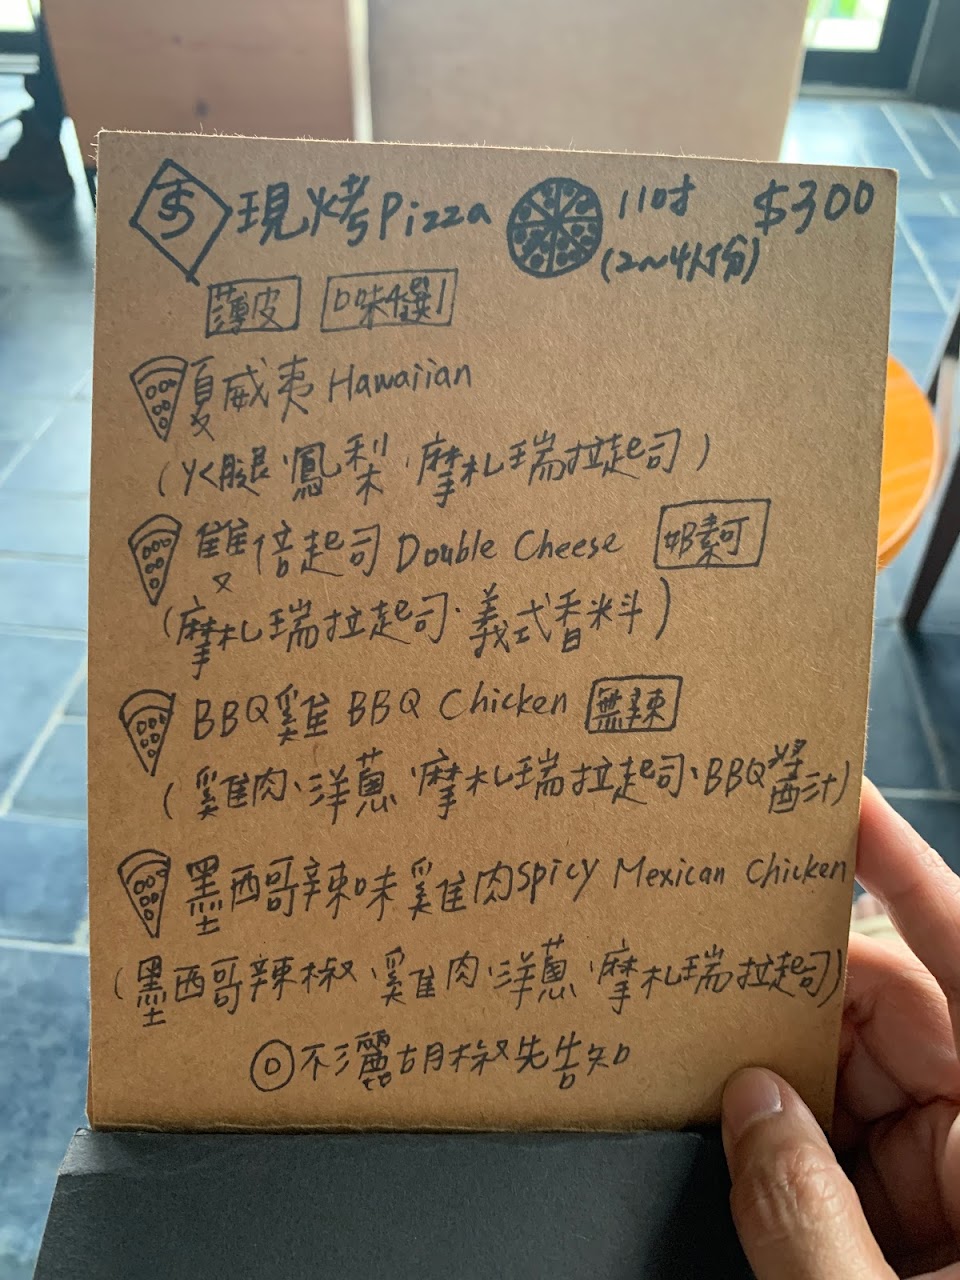 夯 現烤Pizza 11吋 $300
(2~4人份)
薄皮 口味4選1
夏威夷 Hawaiian
(火腿、鳳梨、摩札瑞拉起司)
雙倍起司 Double Cheese 奶素可
(摩札瑞拉起司、義式香料)
BBQ雞 BBQ Chicken 無辣
(雞肉、洋蔥、摩札瑞拉起司、BBQ醬汁)
墨西哥辣味雞肉 Spicy Mexican Chicken
(墨西哥辣椒、雞肉、洋蔥、摩札瑞拉起司)
◎不灑胡椒先告知